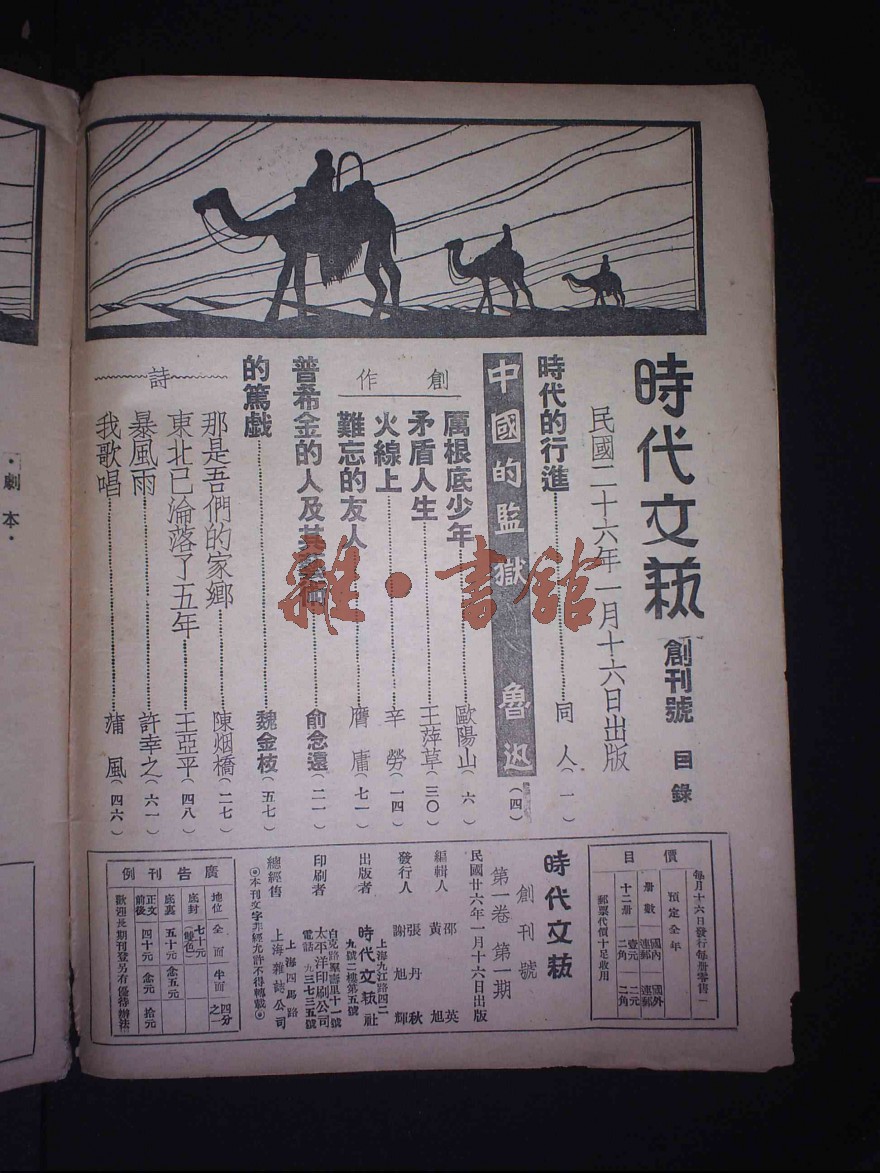 時代文藝 創刊號 目錄
民國二十六年一月十六日出版
時代的行進 同人（一）
中國的監獄 魯迅（四）
創作
厲根底少年 歐陽山（六）
矛盾人生 王萍草（三〇）
火線上 辛勞（一四）
難忘的友人 膺庸（七一）
普希金的人及其藝術 俞念遠（二一）
的篤戲 魏金枝（五七）
詩
那是吾們的家鄉 陳烟橋（二七）
東北已淪落了五年 王亞平（四八）
暴風雨 許幸之（六一）
我歌唱 蒲風（四六）
·劇本·
雜·書館
價目
每月十六日發行每册零售一
預定全年
册數 國內連郵 國外連郵
十二册 壹元二角 二元二角
郵票代價十足收用
時代文藝
創刊號
第一卷 第一期
民國廿六年一月十六日出版
編輯人 邵英 黃旭
發行人 張丹秋 謝旭輝
出版者 時代文藝社
上海九江路四二九號二樓第五號
印刷者 太平洋印刷公司
白克路聚壽里十一號
電話 九三七三五號
總經售 上海雜誌公司
上海四馬路
◎本刊文字非經允許不得轉載◎
廣告刊例
地位 全面 半面 四分之一
底封 七十元（雙色）
底裏 五十元 念五元
正文前後 四十元 念元 拾元
歡迎長期刊登另有優待辦法